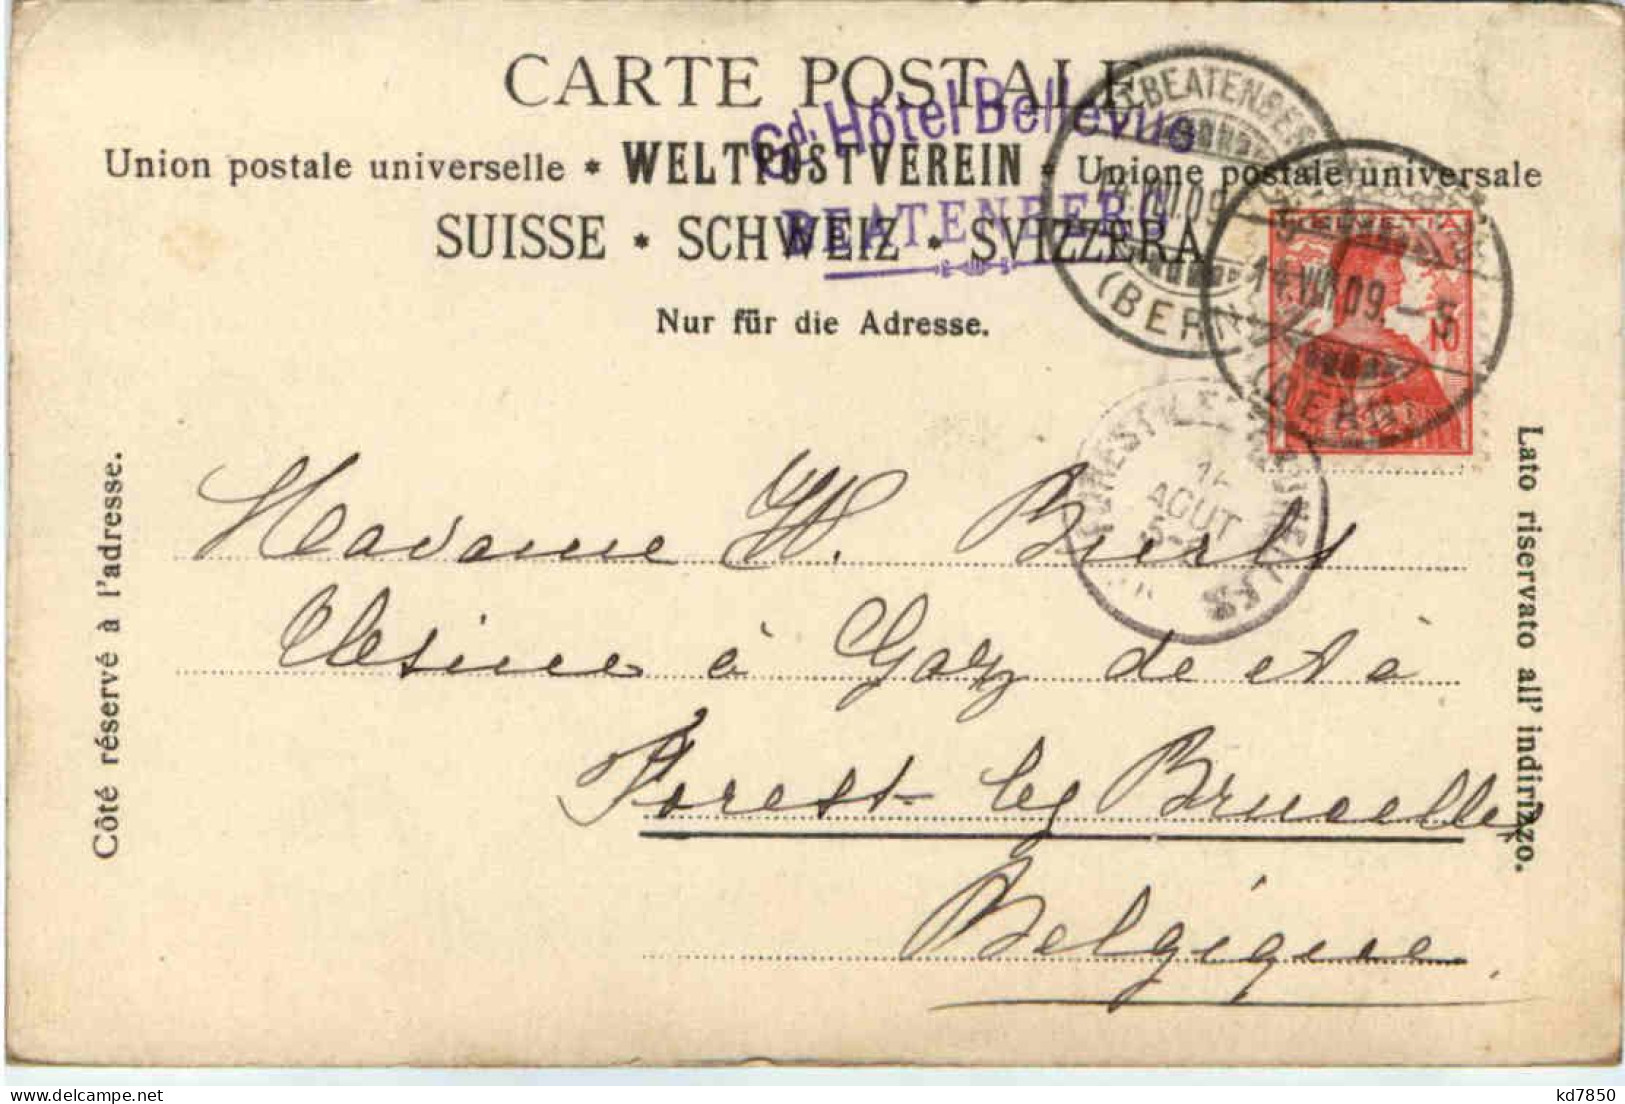 CARTE POSTALE
Gd. Hôtel Bellevue
BEATENBERG
Union postale universelle * WELTPOSTVEREIN * Unione postale universale
SUISSE * SCHWEIZ * SVIZZERA
Nur für die Adresse.
BEATENBERG
VIII.09
(BERN)
HELVETIA
10
14.VIII.09.-5
(BERN)
FOREST (LEZ-BRUXELLES)
AOUT
Côté réservé à l'adresse.
Lato riservato all' indirizzo.
Madame W. Bierls
Usine à Gaz de et à
Forest lez Bruxelles
Belgique.
kd7850